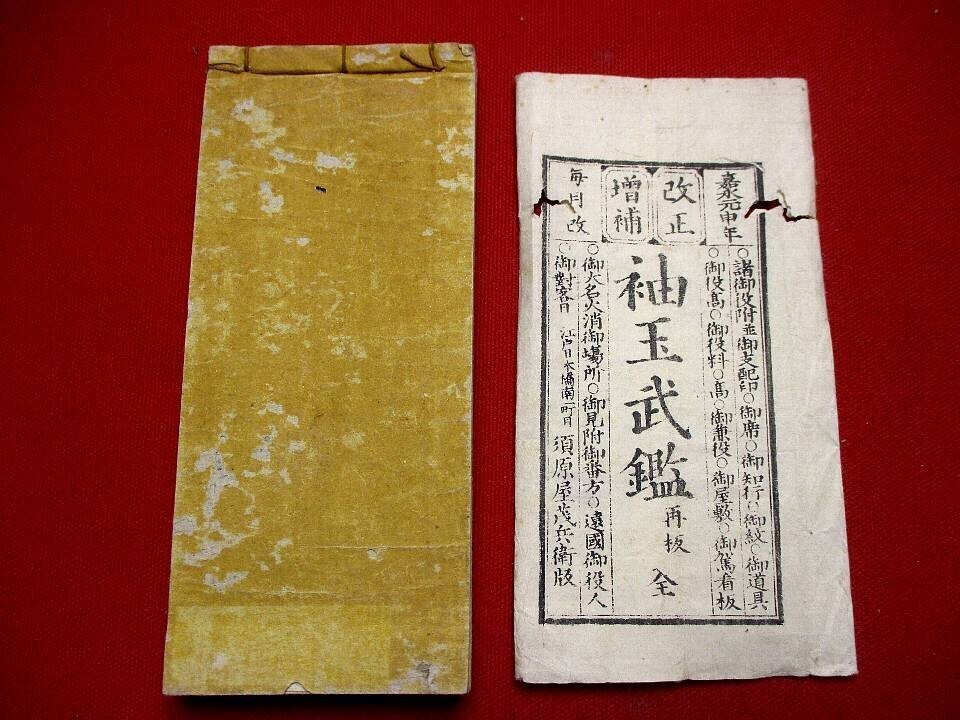 嘉永元申年
改正
増補
毎月改
○諸御役附並御支配印○御席○御知行○御紋○御道具
○御役高○御役料○高○御兼役○御屋敷○御駕看板
袖玉武鑑 再板 全
○御大名火消御場所○御見附御番方○遠國御役人
○御對客日 江戸日本橋南一町目 須原屋茂兵衛版